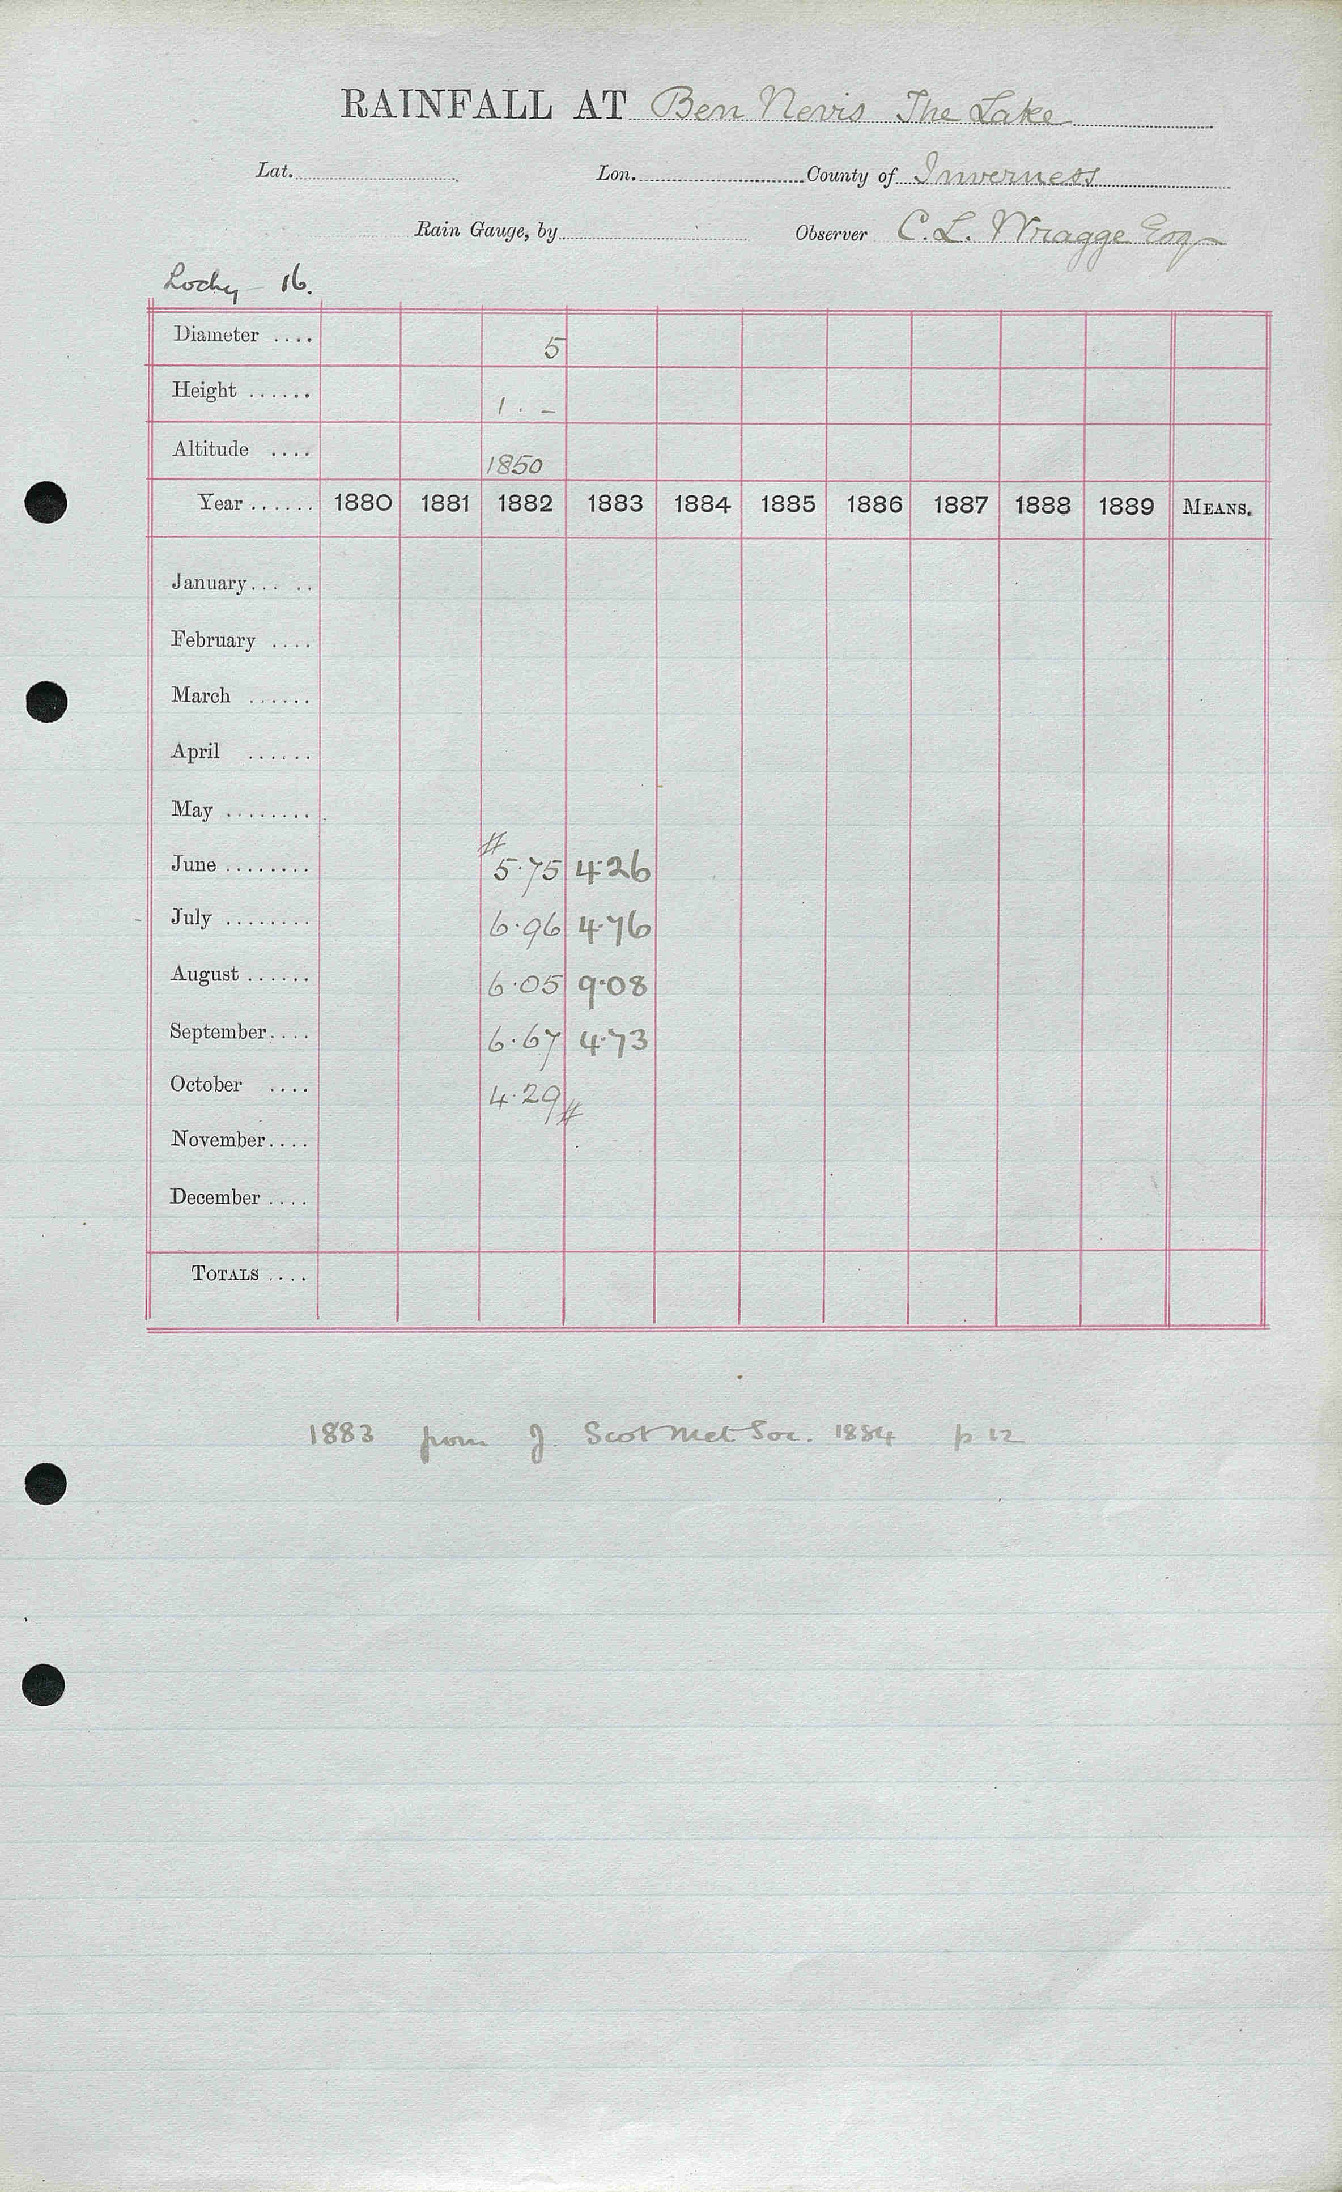 RAINFALL AT Ben Nevis The Lake
Lat. Lon. County of Inverness
Rain Gauge, by Observer C. L. Wragge Esq
Lochy 16.
Diameter .... 5
Height ...... 1 . –
Altitude .... 1850
Year ...... 1880 1881 1882 1883 1884 1885 1886 1887 1888 1889 MEANS.
January.... ..
February ....
March ......
April ......
May ........
#
June ........ 5.75 4.26
July ........ 6.96 4.76
August ...... 6.05 9.08
September.... 6.67 4.73
October .... 4.29 #
November....
December ....
TOTALS ....
1883 from J. Scot Met Soc. 1884 p 12